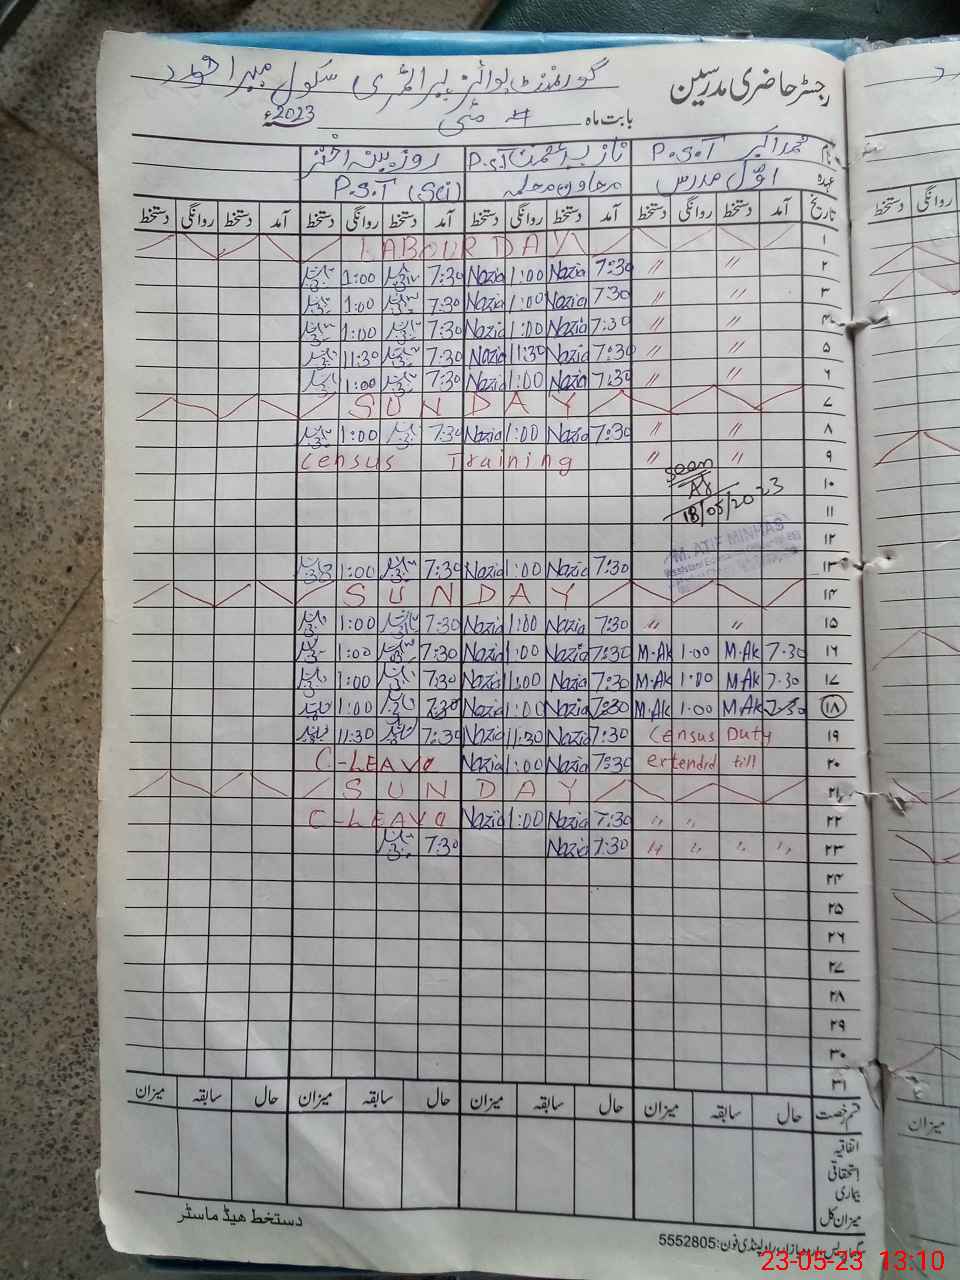 رجسٹر حاضری مدرسین گورنمنٹ بوائز پرائمری سکول میرا خورد
بابت ماہ مئی 2023ء
نام محمد اکبر P.S.T نازیہ P.S.T روزینہ اختر
عہدہ اول مدرس معاون معلمہ P.S.T (Sci)
تاریخ آمد دستخط روانگی دستخط آمد دستخط روانگی دستخط آمد دستخط روانگی دستخط آمد دستخط روانگی دستخط
۱ LABOUR DAY
۲ " " 7:30 Nazia 1:00 Nazia 7:30 1:00
۳ " " 7:30 Nazia 1:00 Nazia 7:30 1:00
۴ " " 7:30 Nazia 1:00 Nazia 7:30 1:00
۵ " " 7:30 Nazia 11:30 Nazia 7:30 11:30
۶ " " 7:30 Nazia 1:00 Nazia 7:30 1:00
۷ SUNDAY
۸ " " 7:30 Nazia 1:00 Nazia 7:30 1:00
۹ " " Census Training
۱۰ Seen
۱۱ 18/05/2023
۱۲ M. ATIF MINHAS
۱۳ 7:30 Nazia 1:00 Nazia 7:30 1:00
۱۴ SUNDAY
۱۵ " " 7:30 Nazia 1:00 Nazia 7:30 1:00
۱۶ 7:30 M.Ak 1:00 M.Ak 7:30 Nazia 1:00 Nazia 7:30 1:00
۱۷ 7:30 M.Ak 1:00 M.Ak 7:30 Nazia 1:00 Nazia 7:30 1:00
۱۸ 7:30 M.Ak 1:00 M.Ak 7:30 Nazia 1:00 Nazia 7:30 1:00
۱۹ Census Duty 7:30 Nazia 11:30 Nazia 7:30 11:30
۲۰ extended till 7:30 Nazia 1:00 Nazia C-LEAVE
۲۱ SUNDAY
۲۲ " " 7:30 Nazia 1:00 Nazia C-LEAVE
۲۳ " " " " 7:30 Nazia 7:30
۲۴
۲۵
۲۶
۲۷
۲۸
۲۹
۳۰
۳۱
قسم رخصت حال سابقہ میزان حال سابقہ میزان حال سابقہ میزان حال سابقہ میزان
اتفاقیہ
استحقاقی
بیماری
میزان کل
دستخط ھیڈ ماسٹر
اردو بازار، راولپنڈی فون: 5552805
میزان
23-05-23 13:10